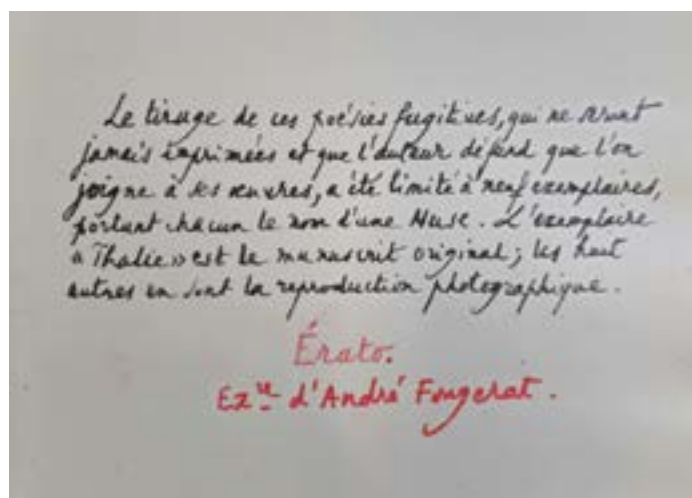 Le tirage de ces poésies fugitives, qui ne seront
jamais imprimées et que l'auteur défend que l'on
joigne à ses œuvres, a été limité à neuf exemplaires,
portant chacun le nom d'une Muse. L'exemplaire
« Thalie » est le manuscrit original ; les huit
autres en sont la reproduction photographique.
Érato.
Ex.re d'André Fougerat.